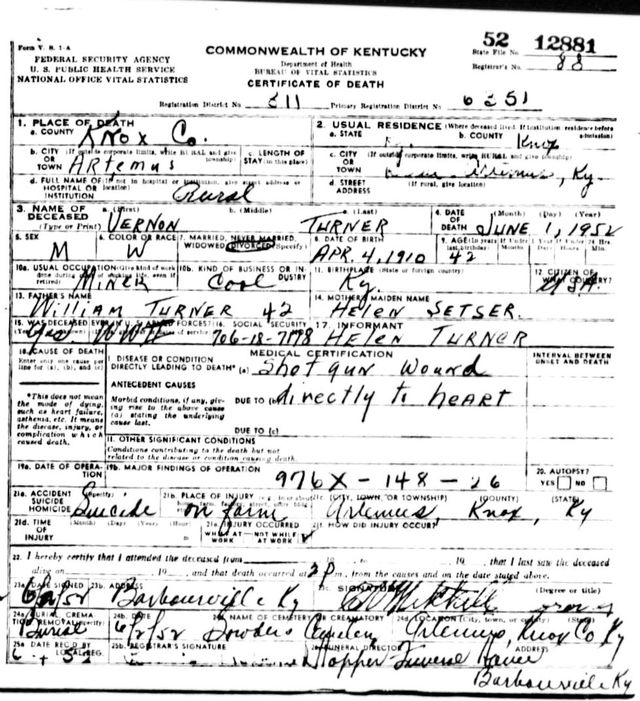 Form V. S. 1-A
FEDERAL SECURITY AGENCY
U. S. PUBLIC HEALTH SERVICE
NATIONAL OFFICE VITAL STATISTICS
COMMONWEALTH OF KENTUCKY
Department of Health
BUREAU OF VITAL STATISTICS
CERTIFICATE OF DEATH
52 12881
State File No.
Registrar's No. 88
Registration District No. 211 Primary Registration District No. 6251
1. PLACE OF DEATH
a. COUNTY Knox Co.
2. USUAL RESIDENCE (Where deceased lived. If institution: residence before admission)
a. STATE Ky. b. COUNTY Knox
b. CITY (If outside corporate limits, write RURAL and give township) OR TOWN Artemus
c. LENGTH OF STAY (in this place)
c. CITY (If outside corporate limits, write RURAL and give township) OR TOWN Artemus, Ky.
d. FULL NAME OF (If not in hospital or institution, give street address or location) HOSPITAL OR INSTITUTION Rural
d. STREET ADDRESS (If rural, give location)
3. NAME OF DECEASED (Type or Print)
a. (First) VERNON b. (Middle) c. (Last) TURNER
4. DATE OF DEATH (Month) (Day) (Year) JUNE 1, 1952
5. SEX M
6. COLOR OR RACE W
7. MARRIED, NEVER MARRIED, WIDOWED, DIVORCED (Specify)
8. DATE OF BIRTH APR. 4, 1910
9. AGE (In years last birthday) 42
If Under 1 Year Months Days If Under 24 Hrs. Hours Min.
10a. USUAL OCCUPATION (Give kind of work done during most of working life, even if retired) MINER
10b. KIND OF BUSINESS OR INDUSTRY Coal
11. BIRTHPLACE (State or foreign country) Ky.
12. CITIZEN OF WHAT COUNTRY? USA.
13. FATHER'S NAME WILLIAM TURNER 42
14. MOTHER'S MAIDEN NAME HELEN SETSER.
15. WAS DECEASED EVER IN U. S. ARMED FORCES? Yes WWII
16. SOCIAL SECURITY 706-18-7178
17. INFORMANT HELEN TURNER
18. CAUSE OF DEATH
Enter only one cause per line for (a), (b), and (c)
MEDICAL CERTIFICATION
INTERVAL BETWEEN ONSET AND DEATH
I. DISEASE OR CONDITION DIRECTLY LEADING TO DEATH* (a) Shotgun Wound
*This does not mean the mode of dying, such as heart failure, asthenia, etc. It means the disease, injury, or complication which caused death.
ANTECEDENT CAUSES
Morbid conditions, if any, giving rise to the above cause (a) stating the underlying cause last.
DUE TO (b) directly to heart
DUE TO (c)
II. OTHER SIGNIFICANT CONDITIONS
Conditions contributing to the death but not related to the disease or condition causing death.
19a. DATE OF OPERATION
19b. MAJOR FINDINGS OF OPERATION
976X - 148 - 26
20. AUTOPSY?
YES NO
21a. ACCIDENT SUICIDE HOMICIDE (Specify) Suicide
21b. PLACE OF INJURY on farm
21c. (CITY, TOWN, OR TOWNSHIP) (COUNTY) (STATE) Artemus, Knox, Ky
21d. TIME OF INJURY (Month) (Day) (Year) (Hour)
21e. INJURY OCCURRED WHILE AT WORK NOT WHILE AT WORK
21f. HOW DID INJURY OCCUR?
22. I hereby certify that I attended the deceased from 19 , to 19 , that I last saw the deceased
alive on 19 , and that death occurred at 2 pm., from the causes and on the date stated above.
23a. DATE SIGNED 23b. ADDRESS Barbourville Ky
23c. SIGNATURE (Degree or title)
24a. BURIAL, CREMATION, REMOVAL (Specify) Burial
24b. DATE 6/2/52
24c. NAME OF CEMETERY OR CREMATORY Cemetery
24d. LOCATION (City, town, or county) (State) Artemus, Knox Co Ky
25a. DATE REC'D BY LOCAL REG.
25b. REGISTRAR'S SIGNATURE
26. FUNERAL DIRECTOR Hopper Funeral Home
Barbourville Ky